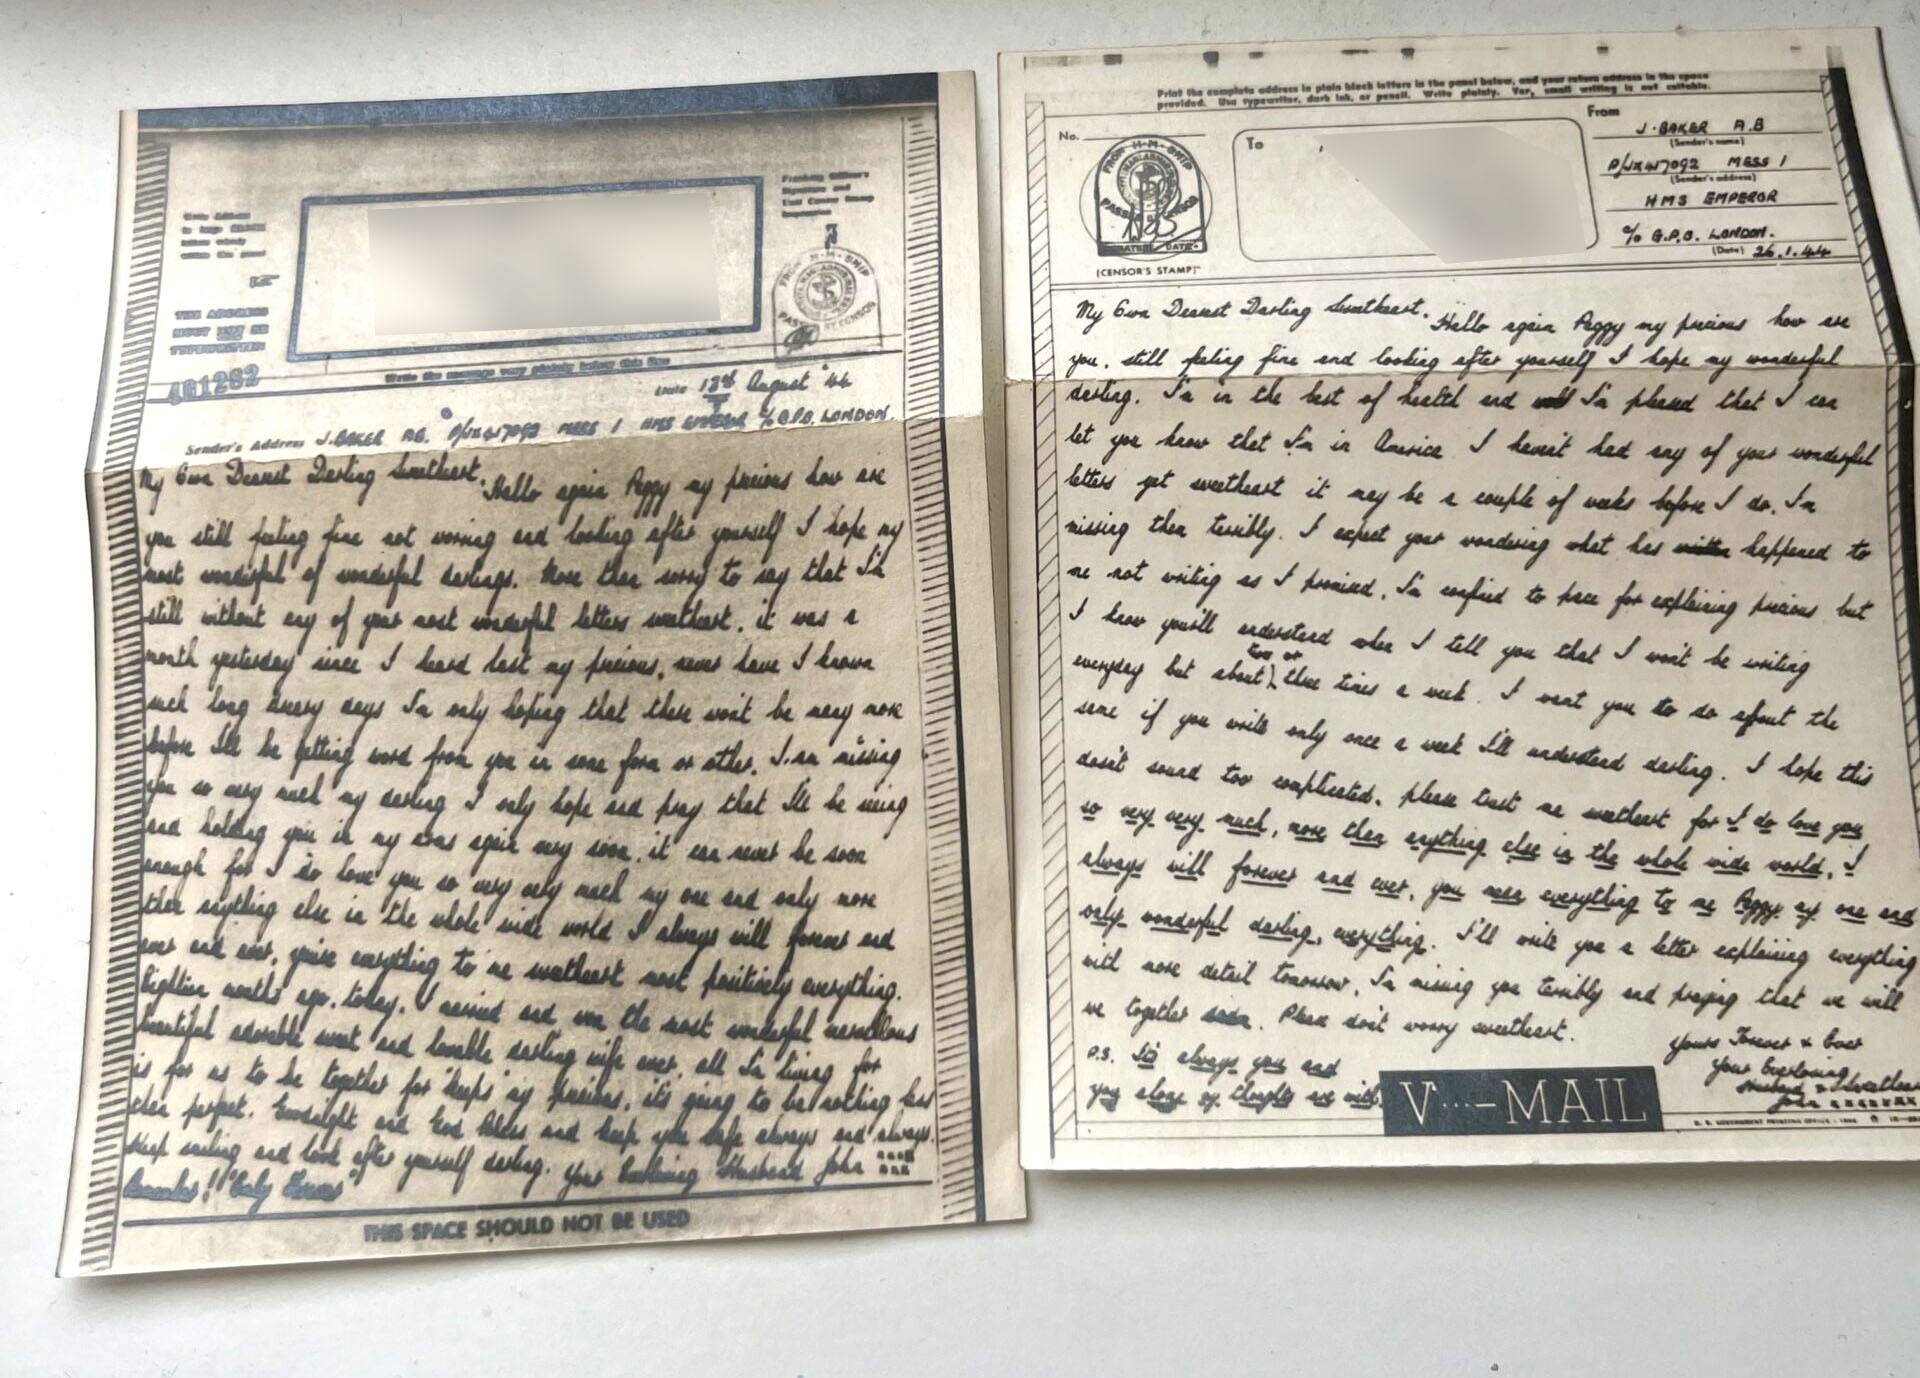 Franking Officer's
Signature and
Unit Censor Stamp
Impression
FROM H·M·SHIP
PASSED BY CENSOR
THE ADDRESS
MUST NOT BE
TYPEWRITTEN
401282
Write the message very plainly below this line
Date 13th August '44
Sender's Address J. BAKER AB. P/JX417092 MESS 1 HMS EMPEROR c/o G.P.O. LONDON.
My Own Dearest Darling Sweetheart. Hello again Peggy my precious how are
you still feeling fine not worring and looking after yourself I hope my
most wonderful of wonderful darlings. More than sorry to say that I'm
still without any of your most wonderful letters sweetheart, it was a
month yesterday since I heard last my precious, never have I known
such long dreary days I'm only hoping that there won't be many more
before I'll be getting word from you in some form or other. I am missing
you so very much my darling I only hope and pray that I'll be seeing
and holding you in my arms again very soon, it can never be soon
enough for I do love you so very very much my one and only more
than anything else in the whole wide world I always will forever and
ever and ever, you're everything to me sweetheart most positively everything.
Eighteen months ago, today, I married and won the most wonderful marvellous
beautiful adorable sweet and lovable darling wife ever, all I'm living for
is for us to be together for "keeps" my precious, it's going to be nothing less
than perfect. Goodnight and God Bless and keep you safe always and always.
Keep smiling and look after yourself darling. Your Everloving Husband John
Remember! "Only Forever"
THIS SPACE SHOULD NOT BE USED
Print the complete address in plain block letters in the panel below, and your return address in the space
provided. Use typewriter, dark ink, or pencil. Write plainly. Very small writing is not suitable.
No.
FROM H·M·SHIP
PASSED CENSOR
SIGNATURE DATE
(CENSOR'S STAMP)
To
From
J. BAKER A.B
(Sender's name)
P/JX417092 MESS 1
(Sender's address)
HMS EMPEROR
c/o G.P.O. LONDON.
(Date) 26.1.44
My Own Dearest Darling Sweetheart. Hello again Peggy my precious how are
you, still feeling fine and looking after yourself I hope my wonderful
darling. I'm in the best of health and I'm pleased that I can
let you know that I'm in America I haven't had any of your wonderful
letters yet sweetheart it may be a couple of weeks before I do, I'm
missing them terribly. I expect your wondering what has happened to
me not writing as I promised, I'm confined to space for explaining precious but
I know you'll understand when I tell you that I won't be writing
everyday but about two or three times a week. I want you to do about the
same if you write only once a week I'll understand darling. I hope this
dosn't sound too complicated, please trust me sweetheart for I do love you
so very very much, more than anything else in the whole wide world, I
always will forever and ever, you mean everything to me Peggy my one and
only wonderful darling, everything. I'll write you a letter explaining everything
with more detail tomorrow, I'm missing you terribly and praying that we will
be together soon. Please don't worry sweetheart.
Yours Forever & Ever
Your Everloving
Husband & Sweetheart
John xxxxxxx
P.S. It's always you and
you alone my thoughts are with.
V···—MAIL
U. S. GOVERNMENT PRINTING OFFICE